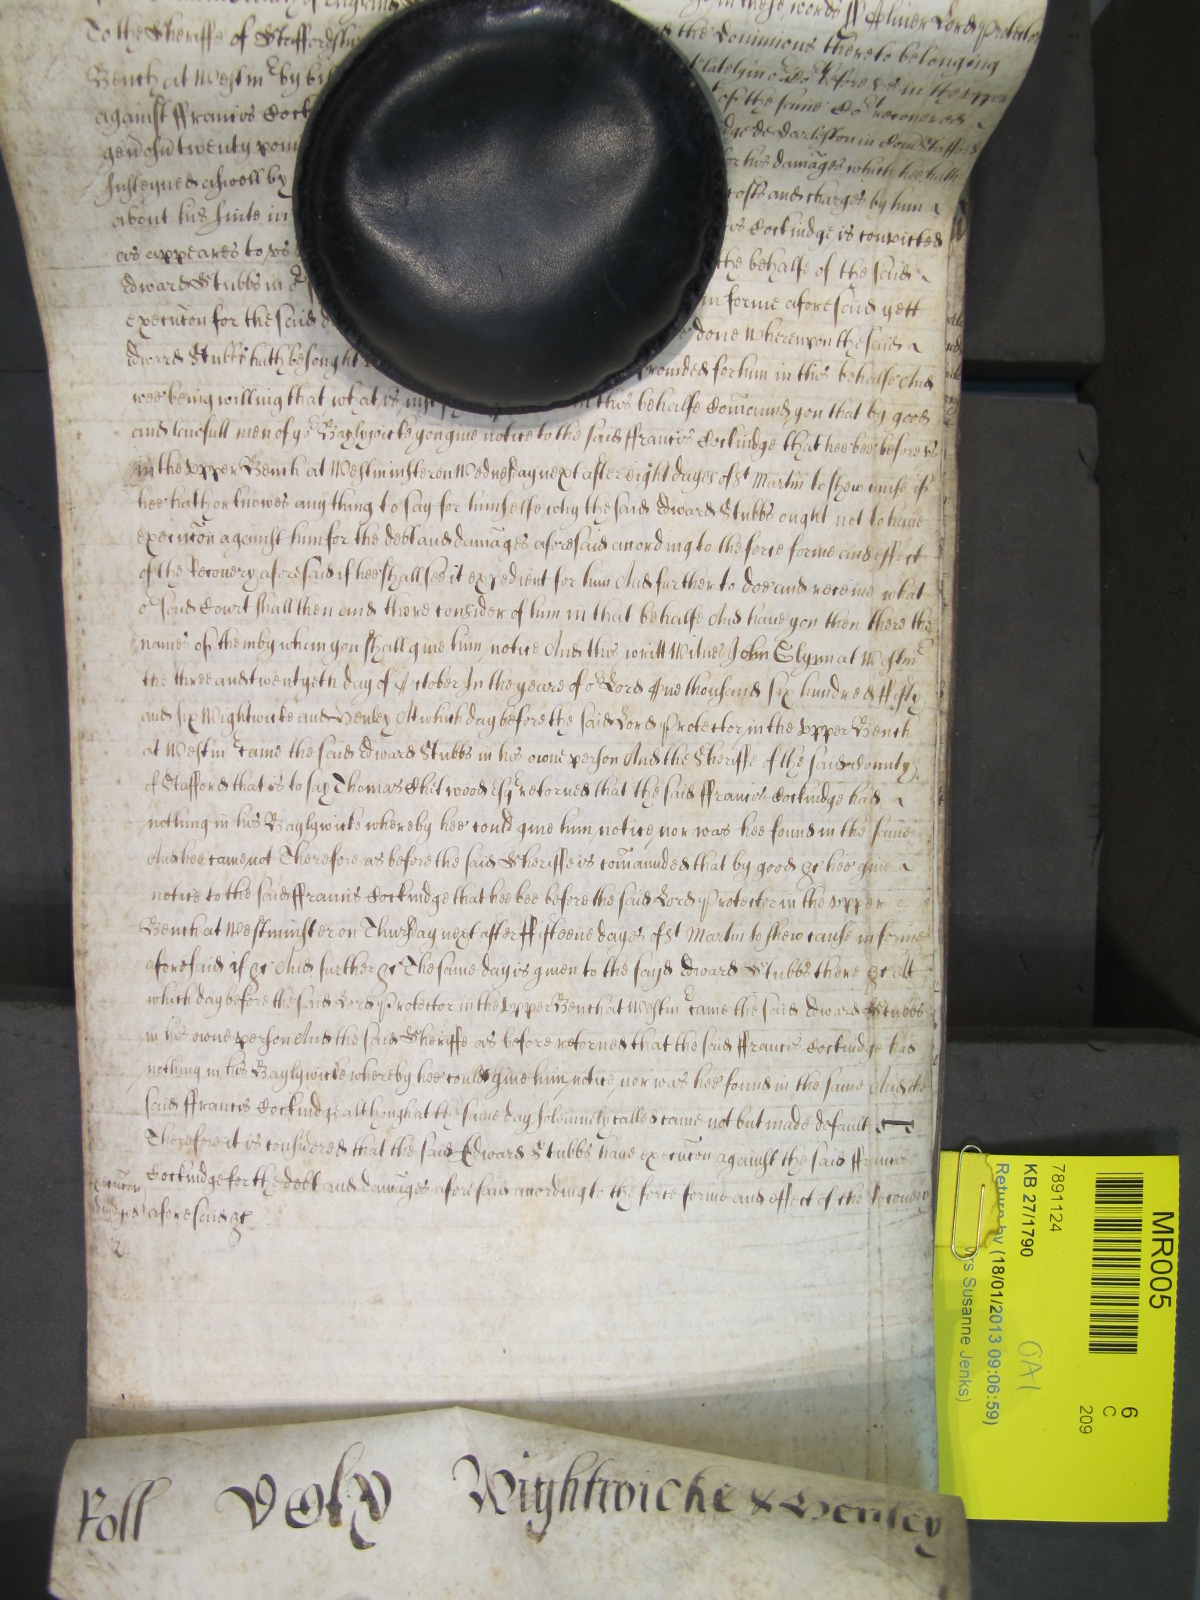 in these words ss Oliver Lord Protector
To the Sheriffe of Staffordshire the Dominions thereto belonging
Bench at Westm by lately in or Cot before us in the upper
against ffrancis Cock of the same Cot recovered
twenty pou de Darlaston in Com Stafford
aswell by for his damages which hee hath
about his suite in costs and charges by him
as appeares to us Cockindge is convicted
Edward Stubbs in the behalfe of the said
execucon for the said in forme aforesaid yett
Edward Stubbs hath besought done Wherevpon the said
provided for him in this behalfe And
wee being willing that what is in this behalfe Comaund you that by good
and lawfull men of yor Baylywicke you give notice to the said ffrancis Cockindge that hee bee before us
in the vpper Bench at Westminster on Wednesday next after eight dayes of St Martin to shew cause if
hee hath or knowes any thing to say for himselfe why the said Edward Stubbs ought not to have
execucon against him for the debt and damages aforesaid according to the force forme and effect
of the Recovery aforesaid if hee shall see it expedient for him And further to doe and receive what
or said Court shall then and there consider of him in that behalfe And have you then there the
names of them by whom you shall give him notice And this writt Witnes John Glynn at Westm
the three and twentyeth day of October In the yeare of or Lord One thousand six hundred ffifty
and six Wightwicke and Henley At which day before the said Lord Protector in the vpper Bench
at Westm came the said Edward Stubbs in his owne person And the Sheriffe of the said County
of Stafford that is to say Thomas Chetwood Esqr retorned that the said ffrancis Cockindge had
nothing in his Baylywicke whereby hee could give him notice nor was hee found in the same
And hee came not Therefore as before the said Sheriffe is comaunded that by good &c hee give
notice to the said ffrancis Cockindge that hee bee before the said Lord Protector in the vpper
Bench at Westminster on Thursday next after ffifteene dayes of St Martin to shew cause in forme
aforesaid if &c And further &c The same day is given to the said Edward Stubbs there &c At
which day before the said Lord Protector in the Vpper Bench at Westm came the said Edward Stubbs
in his owne person And the said Sheriffe as before retorned that the said ffrancis Cockindge had
nothing in his Baylywicke whereby hee could give him notice nor was hee found in the same And the
said ffrancis Cockindge although at the same day solemnely called came not but made default
Therefore it is considered that the said Edward Stubbs have execucon against the said ffrancis
Cockindge for the debt and damages aforesaid according to the force forme and effect of the Recovery
aforesaid &c
Roll Wightwicke & Henley
MR005
6
C
209
7891124
KB 27/1790
OA1
Return by (18/01/2013 09:06:59)
Susanne Jenks)